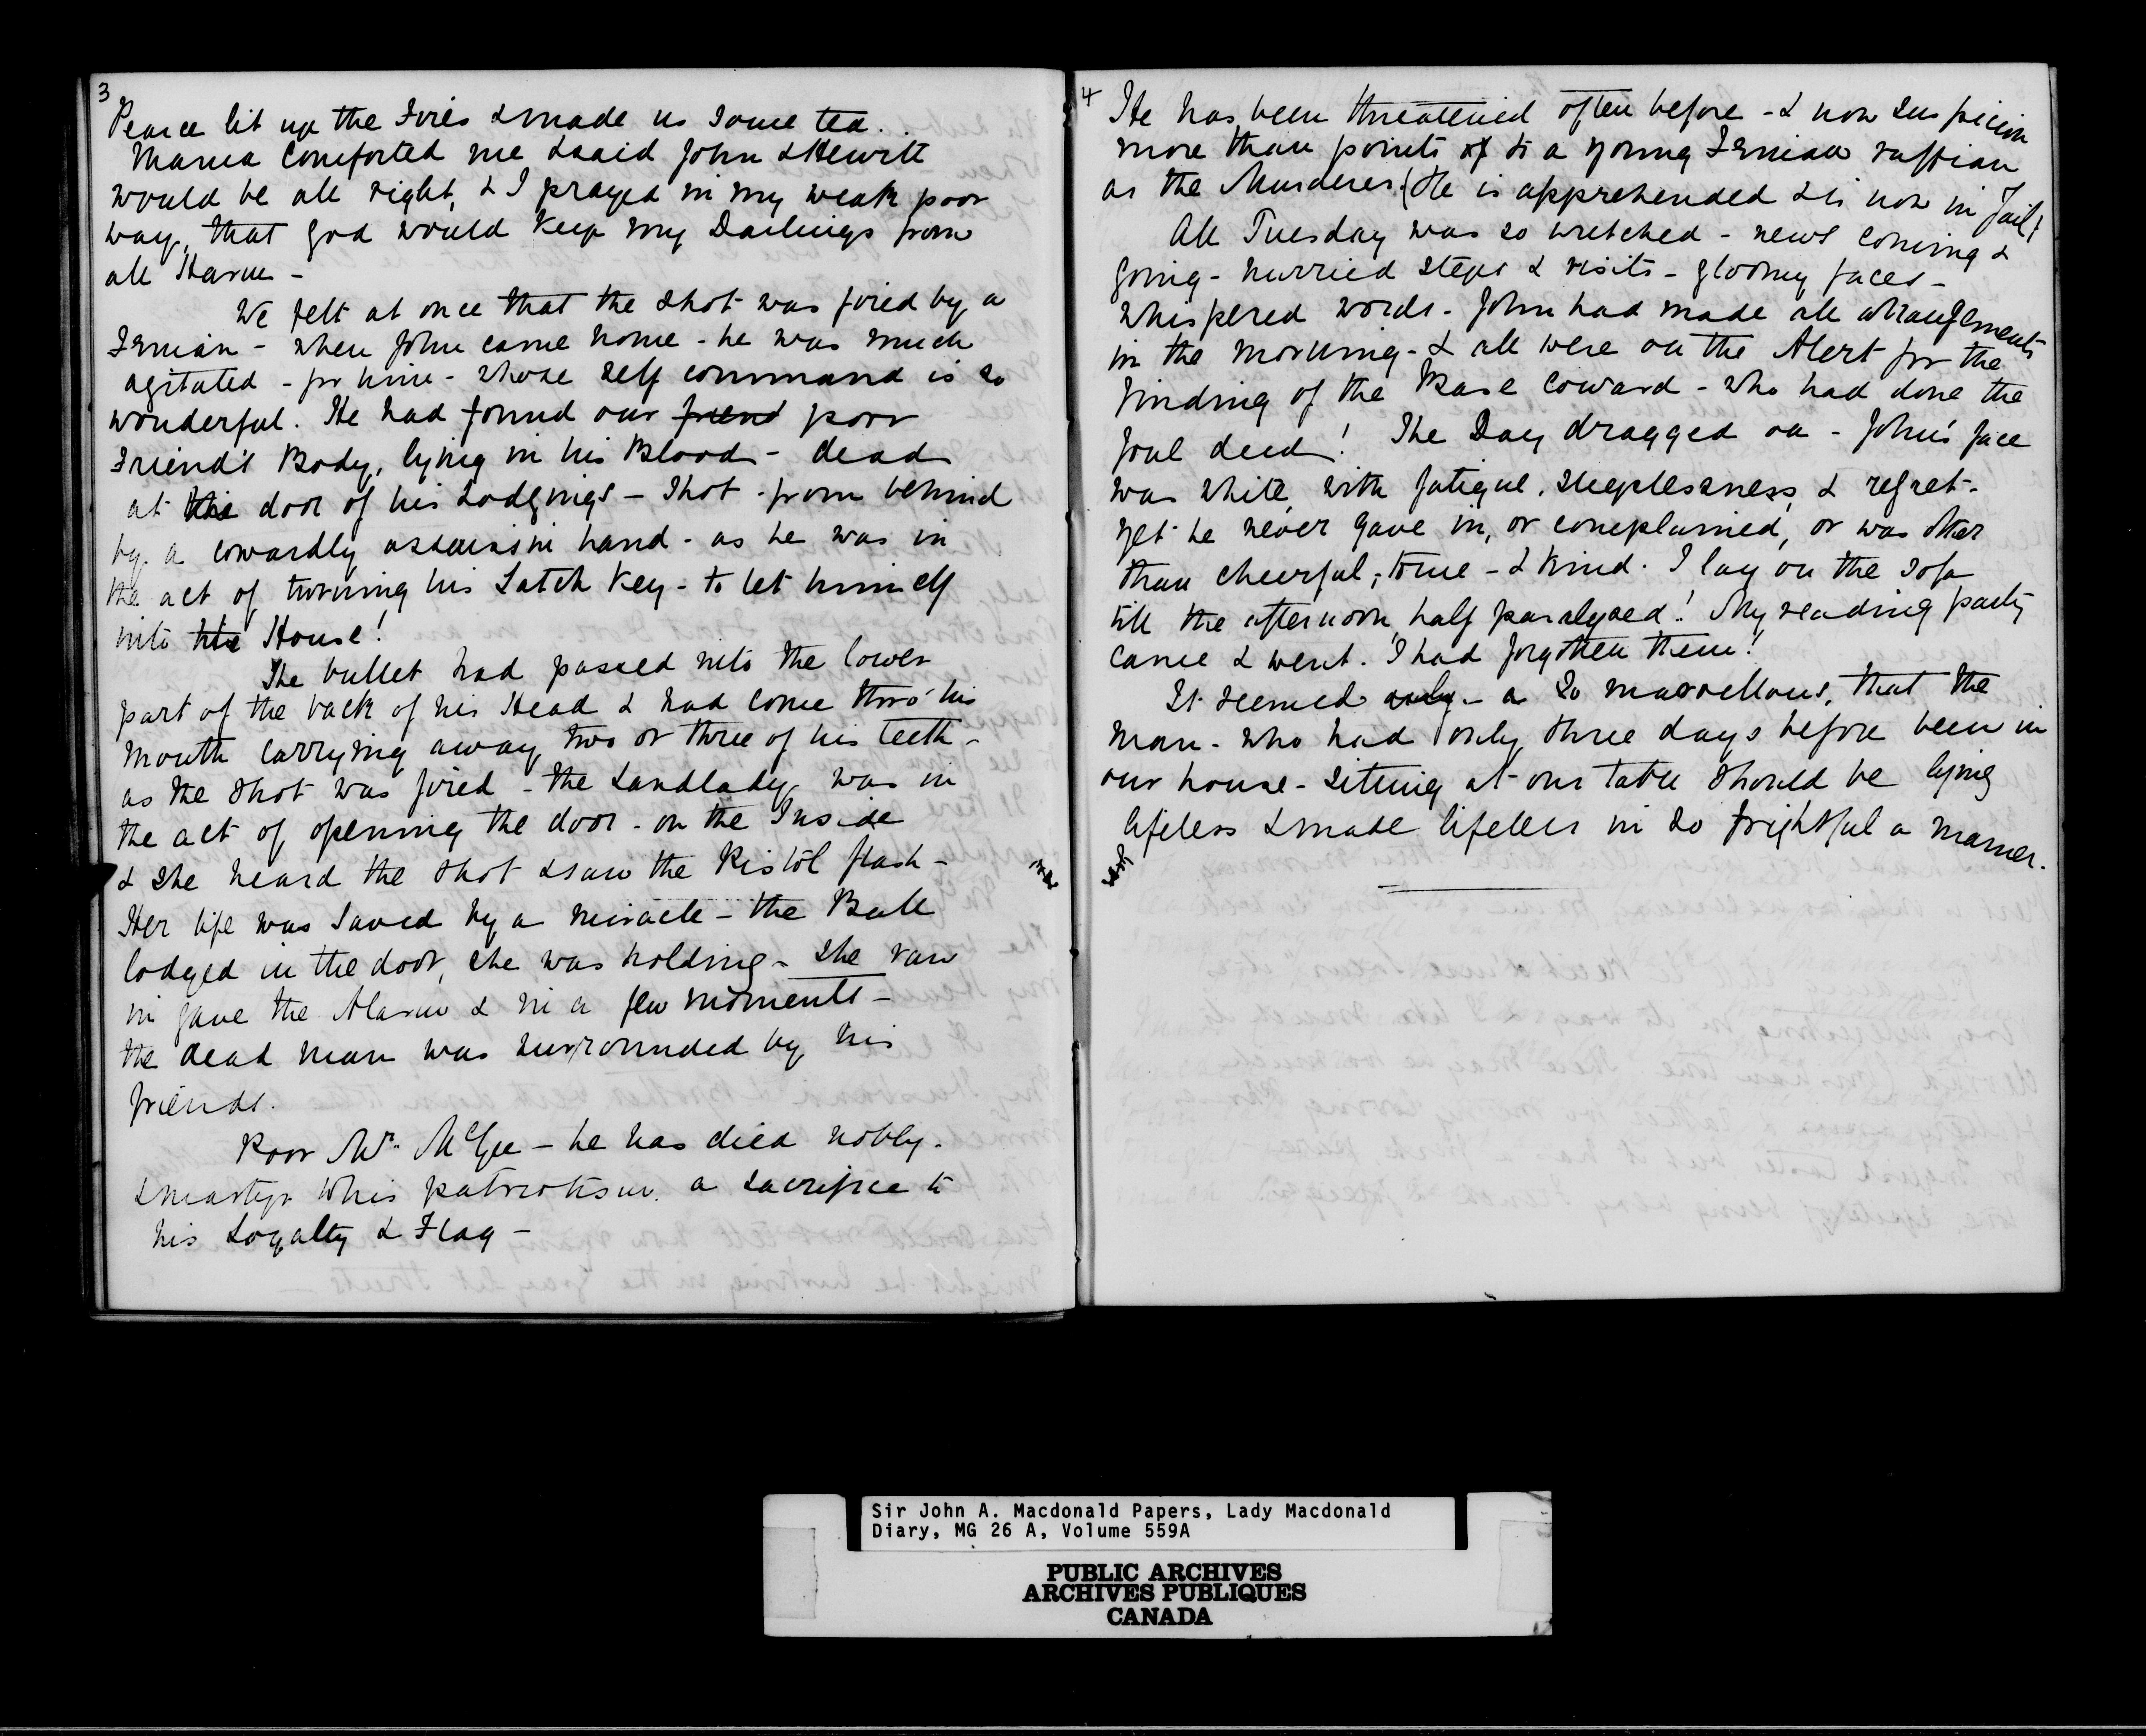 3
Pearce lit up the Fires & made us some tea..
Mama comforted me & said John & Hewitt
would be all right, & I prayed in my weak poor
way, that God would keep my Darlings from
all Harm -
We felt at once that the shot was fired by a
Fenian - when John came home - he was much
agitated - for him - whose self command is so
wonderful. He had found our friend poor
Friend's Body, lying in his Blood - dead
at the door of his Lodgings - Shot - from behind
by a cowardly assassin hand - as he was in
the act of turning his Latch Key - to let himself
into the House!
The bullet had passed into the lower
part of the back of his Head & had come thro' his
mouth carrying away two or three of his teeth -
as the shot was fired - the Landlady, was in
the act of opening the door - on the Inside
& she heard the shot & saw the Pistol flash -
Her life was saved by a miracle - the Ball
lodged in the door, she was holding - She ran
in gave the Alarm & in a few moments -
the dead man was surrounded by his
friends.
Poor Mr. McGee - he has died nobly -
& martyr to his patriotism. a sacrifice to
his Loyalty & Flag -
4
He has been threatened often before - & now suspicion
more than points of to a young Fenian ruffian
as the Murderer (He is apprehended & is now in Jail)
All Tuesday was so wretched - news coming &
going - hurried steps & visits - gloomy faces -
whispered words - John had made all arrangements
in the morning - & all were on the Alert for the
finding of the Base Coward - who had done the
foul deed! The Day dragged on - John's face
was white with fatigue, sleeplessness, & regret -
yet he never gave in, or complained, or was other
than cheerful, - & kind. I lay on the sofa
till the afternoon, half paralyzed! My reading party
came & went. I had forgotten them!
It seemed only - a so marvellous, that the
man - who had only three days before been in
our house - sitting at our table should be lying
lifeless & made lifeless in so frightful a manner.
Sir John A. Macdonald Papers, Lady Macdonald
Diary, MG 26 A, Volume 559A
PUBLIC ARCHIVES
ARCHIVES PUBLIQUES
CANADA